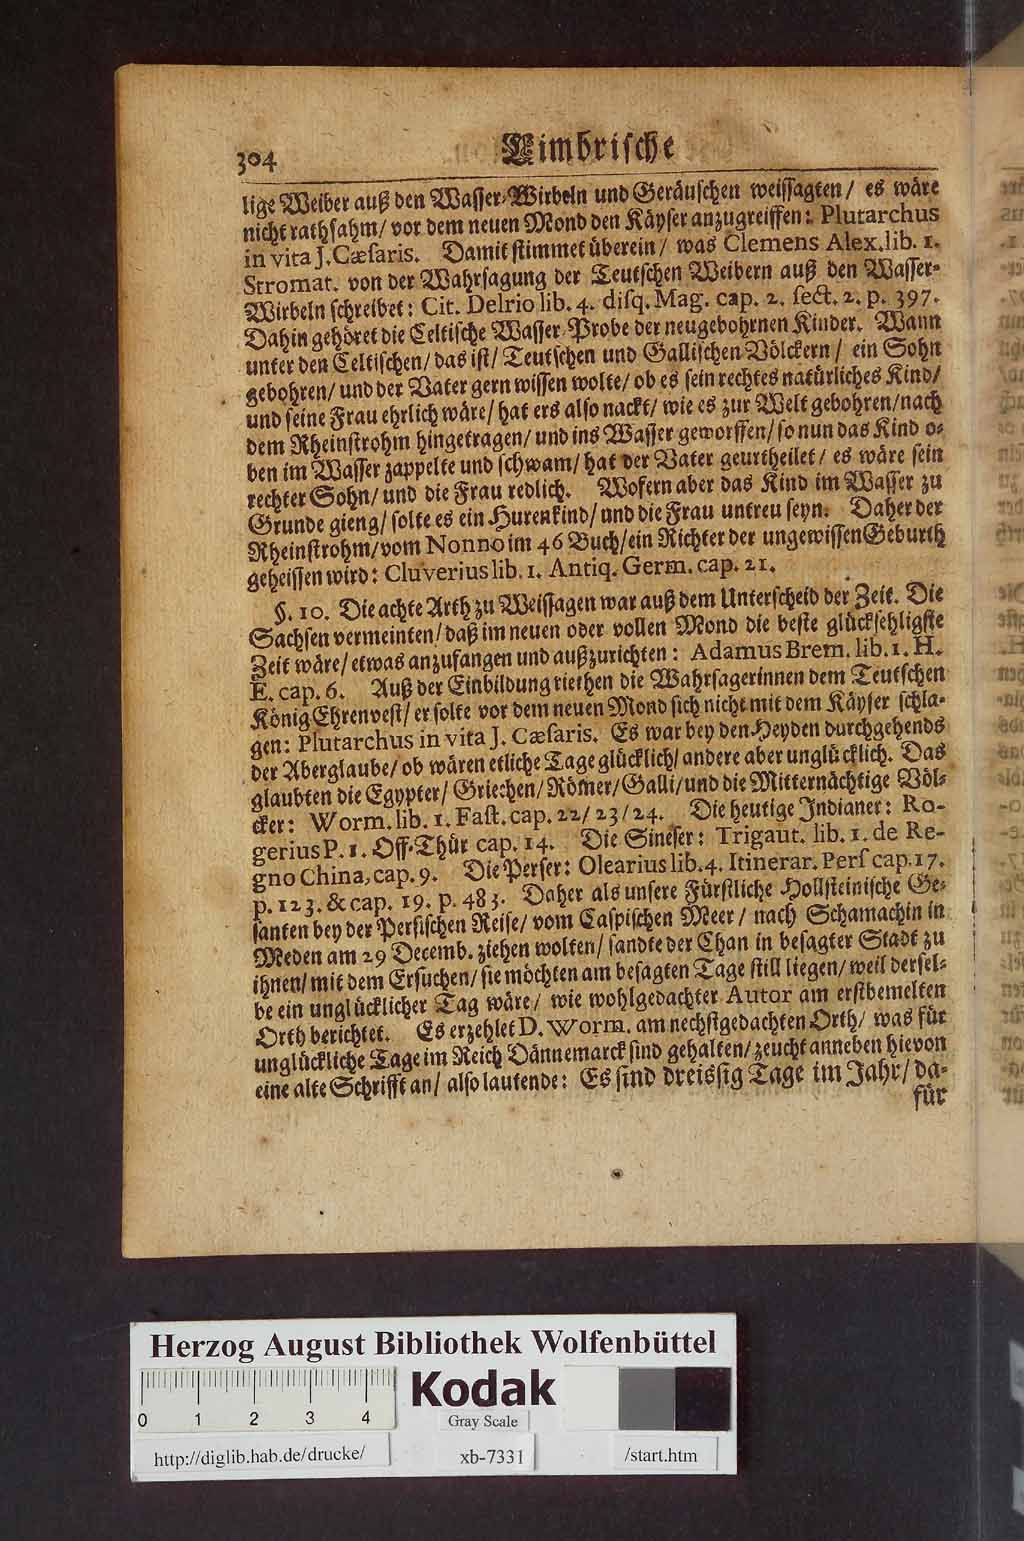 304
Cimbrische
lige Weiber auß den Wasser-Wirbeln und Geräuschen weissagten/ es wäre
nicht rathsahm/ vor dem neuen Mond den Käyser anzugreiffen: Plutarchus
in vita J. Cæsaris. Damit stimmet überein/ was Clemens Alex. lib. 1.
Stromat. von der Wahrsagung der Teutschen Weibern auß den Wasser-
Wirbeln schreibet: Cit. Delrio lib. 4. disq. Mag. cap. 2. sect. 2. p. 397.
Dahin gehöret die Celtische Wasser-Probe der neugebohrnen Kinder. Wann
unter den Celtischen/ das ist/ Teutschen und Gallischen Völckern/ ein Sohn
gebohren/ und der Vater gern wissen wolte/ ob es sein rechtes natürliches Kind/
und seine Frau ehrlich wäre/ hat ers also nackt/ wie es zur Welt gebohren/ nach
dem Rheinstrohm hingetragen/ und ins Wasser geworffen/ so nun das Kind o-
ben im Wasser zappelte und schwam/ hat der Vater geurtheilet/ es wäre sein
rechter Sohn/ und die Frau redlich. Wofern aber das Kind im Wasser zu
Grunde gieng/ solte es ein Hurenkind/ und die Frau untreu seyn. Daher der
Rheinstrohm/ vom Nonno im 46 Buch/ ein Richter der ungewissen Geburth
geheissen wird: Cluverius lib. 1. Antiq. Germ. cap. 21.
§. 10. Die achte Arth zu Weissagen war auß dem Unterscheid der Zeit. Die
Sachsen vermeinten/ daß im neuen oder vollen Mond die beste glücksehligste
Zeit wäre/ etwas anzufangen und außzurichten: Adamus Brem. lib. 1. H.
E. cap. 6. Auß der Einbildung riethen die Wahrsagerinnen dem Teutschen
König Ehrenvest/ er solte vor dem neuen Mond sich nicht mit dem Käyser schla-
gen: Plutarchus in vita J. Cæsaris. Es war bey den Heyden durchgehends
der Aberglaube/ ob wären etliche Tage glücklich/ andere aber unglücklich. Das
glaubten die Egypter/ Griechen/ Römer/ Galli/ und die Mitternächtige Völ-
cker: Worm. lib. 1. Fast. cap. 22/ 23/ 24. Die heutige Indianer: Ro-
gerius P. 1. Off-Thür cap. 14. Die Sineser: Trigaut. lib. 1. de Re-
gno China, cap. 9. Die Perser: Olearius lib. 4. Itinerar. Pers cap. 17.
p. 123. & cap. 19. p. 483. Daher als unsere Fürstliche Hollsteinische Ge-
santen bey der Persischen Reise/ vom Caspischen Meer/ nach Schamachin in
Meden am 29 Decemb. ziehen wolten/ sandte der Chan in besagter Stadt zu
ihnen/ mit dem Ersuchen/ sie möchten am besagten Tage still liegen/ weil dersel-
be ein unglücklicher Tag wäre/ wie wohlgedachter Autor am erstbemelten
Orth berichtet. Es erzehlet D. Worm. am nechstgedachten Orth/ was für
unglückliche Tage im Reich Dännemarck sind gehalten/ zeucht anneben hievon
eine alte Schrifft an/ also lautende: Es sind dreissig Tage im Jahr/ da-
für
Herzog August Bibliothek Wolfenbüttel
0 1 2 3 4
Kodak
Gray Scale
http://diglib.hab.de/drucke/
xb-7331
/start.htm